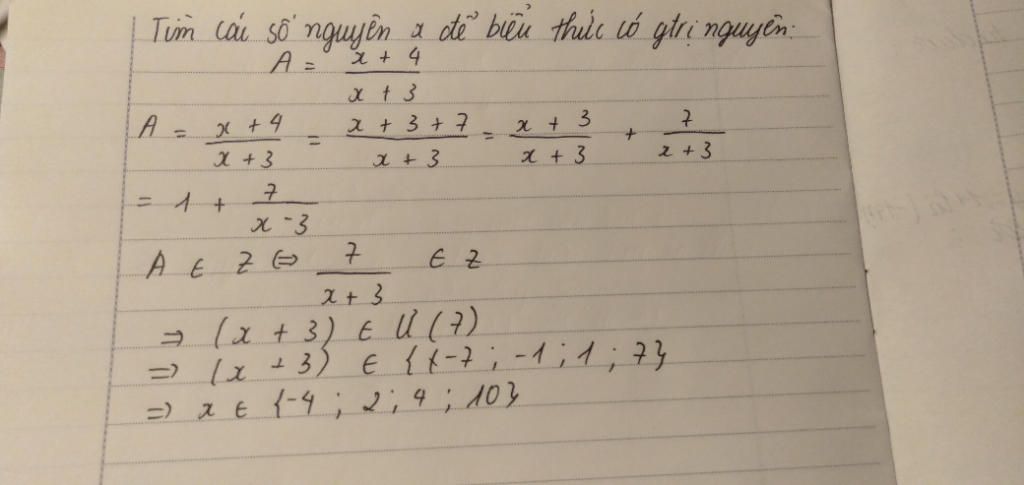 Tìm cái số nguyên x để biểu thức có gtrị nguyên:
A = \frac{x + 4}{x + 3}
A = \frac{x + 4}{x + 3} = \frac{x + 3 + 7}{x + 3} = \frac{x + 3}{x + 3} + \frac{7}{x + 3}
= 1 + \frac{7}{x - 3}
A ∈ Z ⇔ \frac{7}{x + 3} ∈ Z
⇒ (x + 3) ∈ Ư(7)
⇒ (x + 3) ∈ {{-7 ; -1 ; 1 ; 7}
⇒ x ∈ {-4 ; 2 ; 4 ; 10}